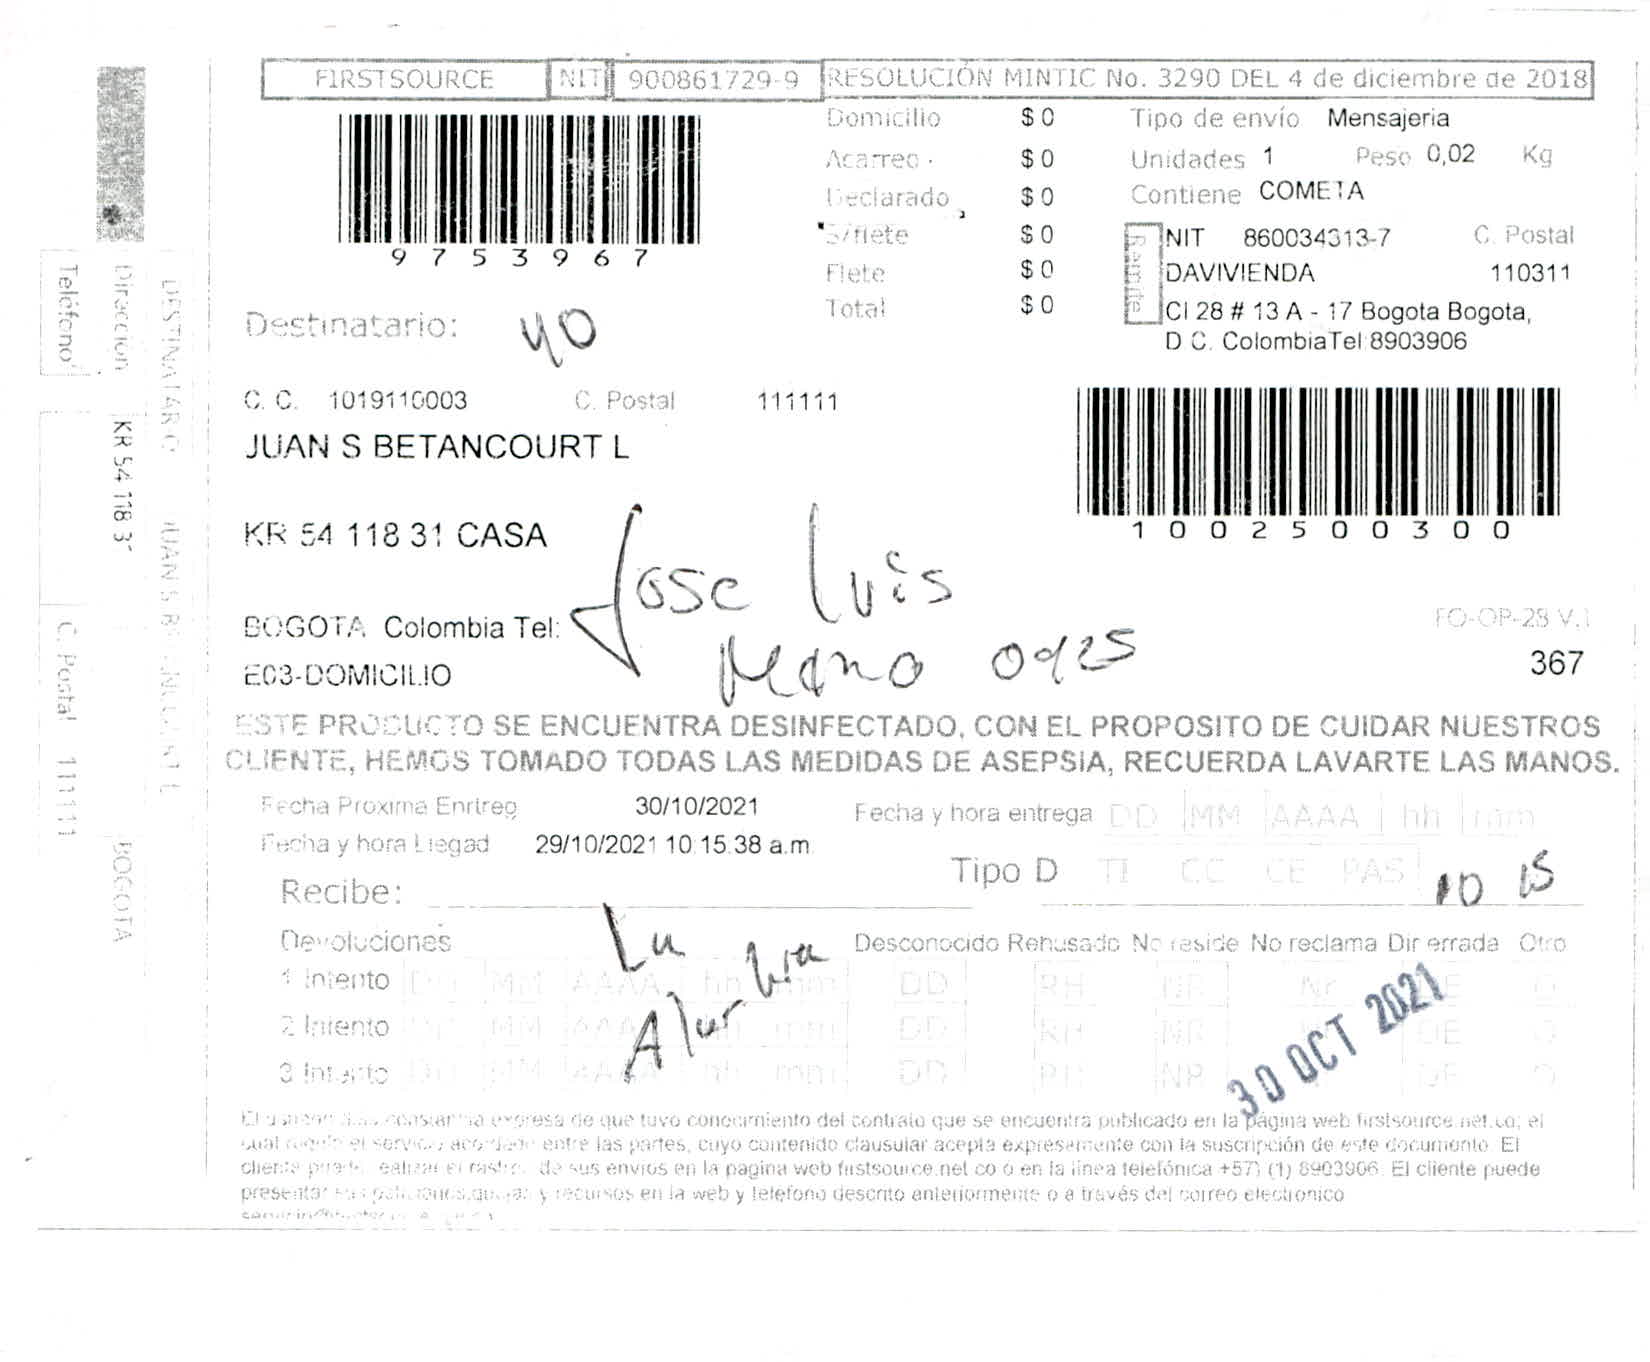 FIRSTSOURCE NIT 900861729-9 RESOLUCIÓN MINTIC No. 3290 DEL 4 de diciembre de 2018
9 7 5 3 9 6 7
Domicilio $ 0
Acarreo $ 0
Declarado $ 0
S/flete $ 0
Flete $ 0
Total $ 0
Tipo de envío Mensajeria
Unidades 1 Peso 0,02 Kg
Contiene COMETA
Remite
NIT 860034313-7 C. Postal
DAVIVIENDA 110311
Cl 28 # 13 A - 17 Bogota Bogota,
D.C. ColombiaTel:8903906
Destinatario: 40
C. C. 1019110003 C. Postal 111111
JUAN S BETANCOURT L
KR 54 118 31 CASA
1 0 0 2 5 0 0 3 0 0
Jose Luis
BOGOTA Colombia Tel:
E03-DOMICILIO
FO-OP-28 V.1
367
ESTE PRODUCTO SE ENCUENTRA DESINFECTADO, CON EL PROPOSITO DE CUIDAR NUESTROS
CLIENTE, HEMOS TOMADO TODAS LAS MEDIDAS DE ASEPSIA, RECUERDA LAVARTE LAS MANOS.
Fecha Proxima Enrtreg 30/10/2021
Fecha y hora Llegad 29/10/2021 10:15:38 a.m.
Fecha y hora entrega DD MM AAAA hh mm
Tipo D TI CC CE PAS
10 15
Recibe:
La
Alambra
Devoluciones Desconocido Rehusado No reside No reclama Dir errada Otro
1 Intento DD MM AAAA hh mm DD RH NR Nr DE O
2 Intento DD MM AAAA hh mm DD RH NR DE O
3 Intento DD MM AAAA hh mm DD RH NR DE O
30 OCT 2021
expresa de que tuvo conocimiento del contrato que se encuentra publicado en la pagina web firstsource.net.co; el
cual regula el servicio acordado entre las partes, cuyo contenido clausular acepta expresamente con la suscripción de este documento. El
cliente puede realizar el rastreo de sus envios en la pagina web firstsource.net.co o en la línea telefónica +57) (1) 8903906. El cliente puede
presentar sus peticiones,quejas y recursos en la web y telefono descrito anteriormente o a través del correo electronico
DESTINATARIO JUAN S BETANCOURT L
Dirección KR 54 118 31 BOGOTA
Teléfono C. Postal 111111